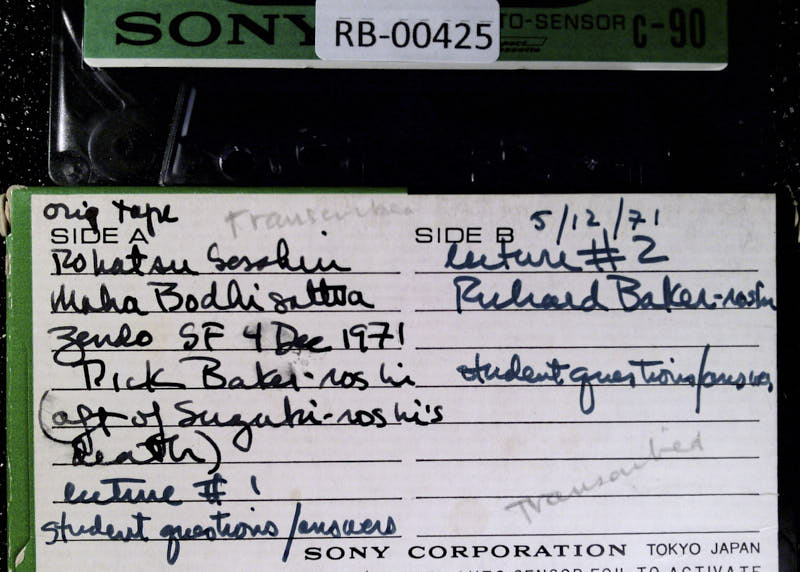 SONY
RB-00425
TO-SENSOR C-90
orig tape
Transcribed
SIDE A
Rohatsu Sesshin
Maha Bodhisattva
Zendo SF 4 Dec 1971
Rick Baker-roshi
(aft of Suzuki-roshi's
death)
lecture # 1
student questions/answers
5/12/71
SIDE B
lecture # 2
Richard Baker-roshi
student questions/answers
Transcribed
SONY CORPORATION TOKYO JAPAN
AUTO-SENSOR FOIL TO ACTIVATE